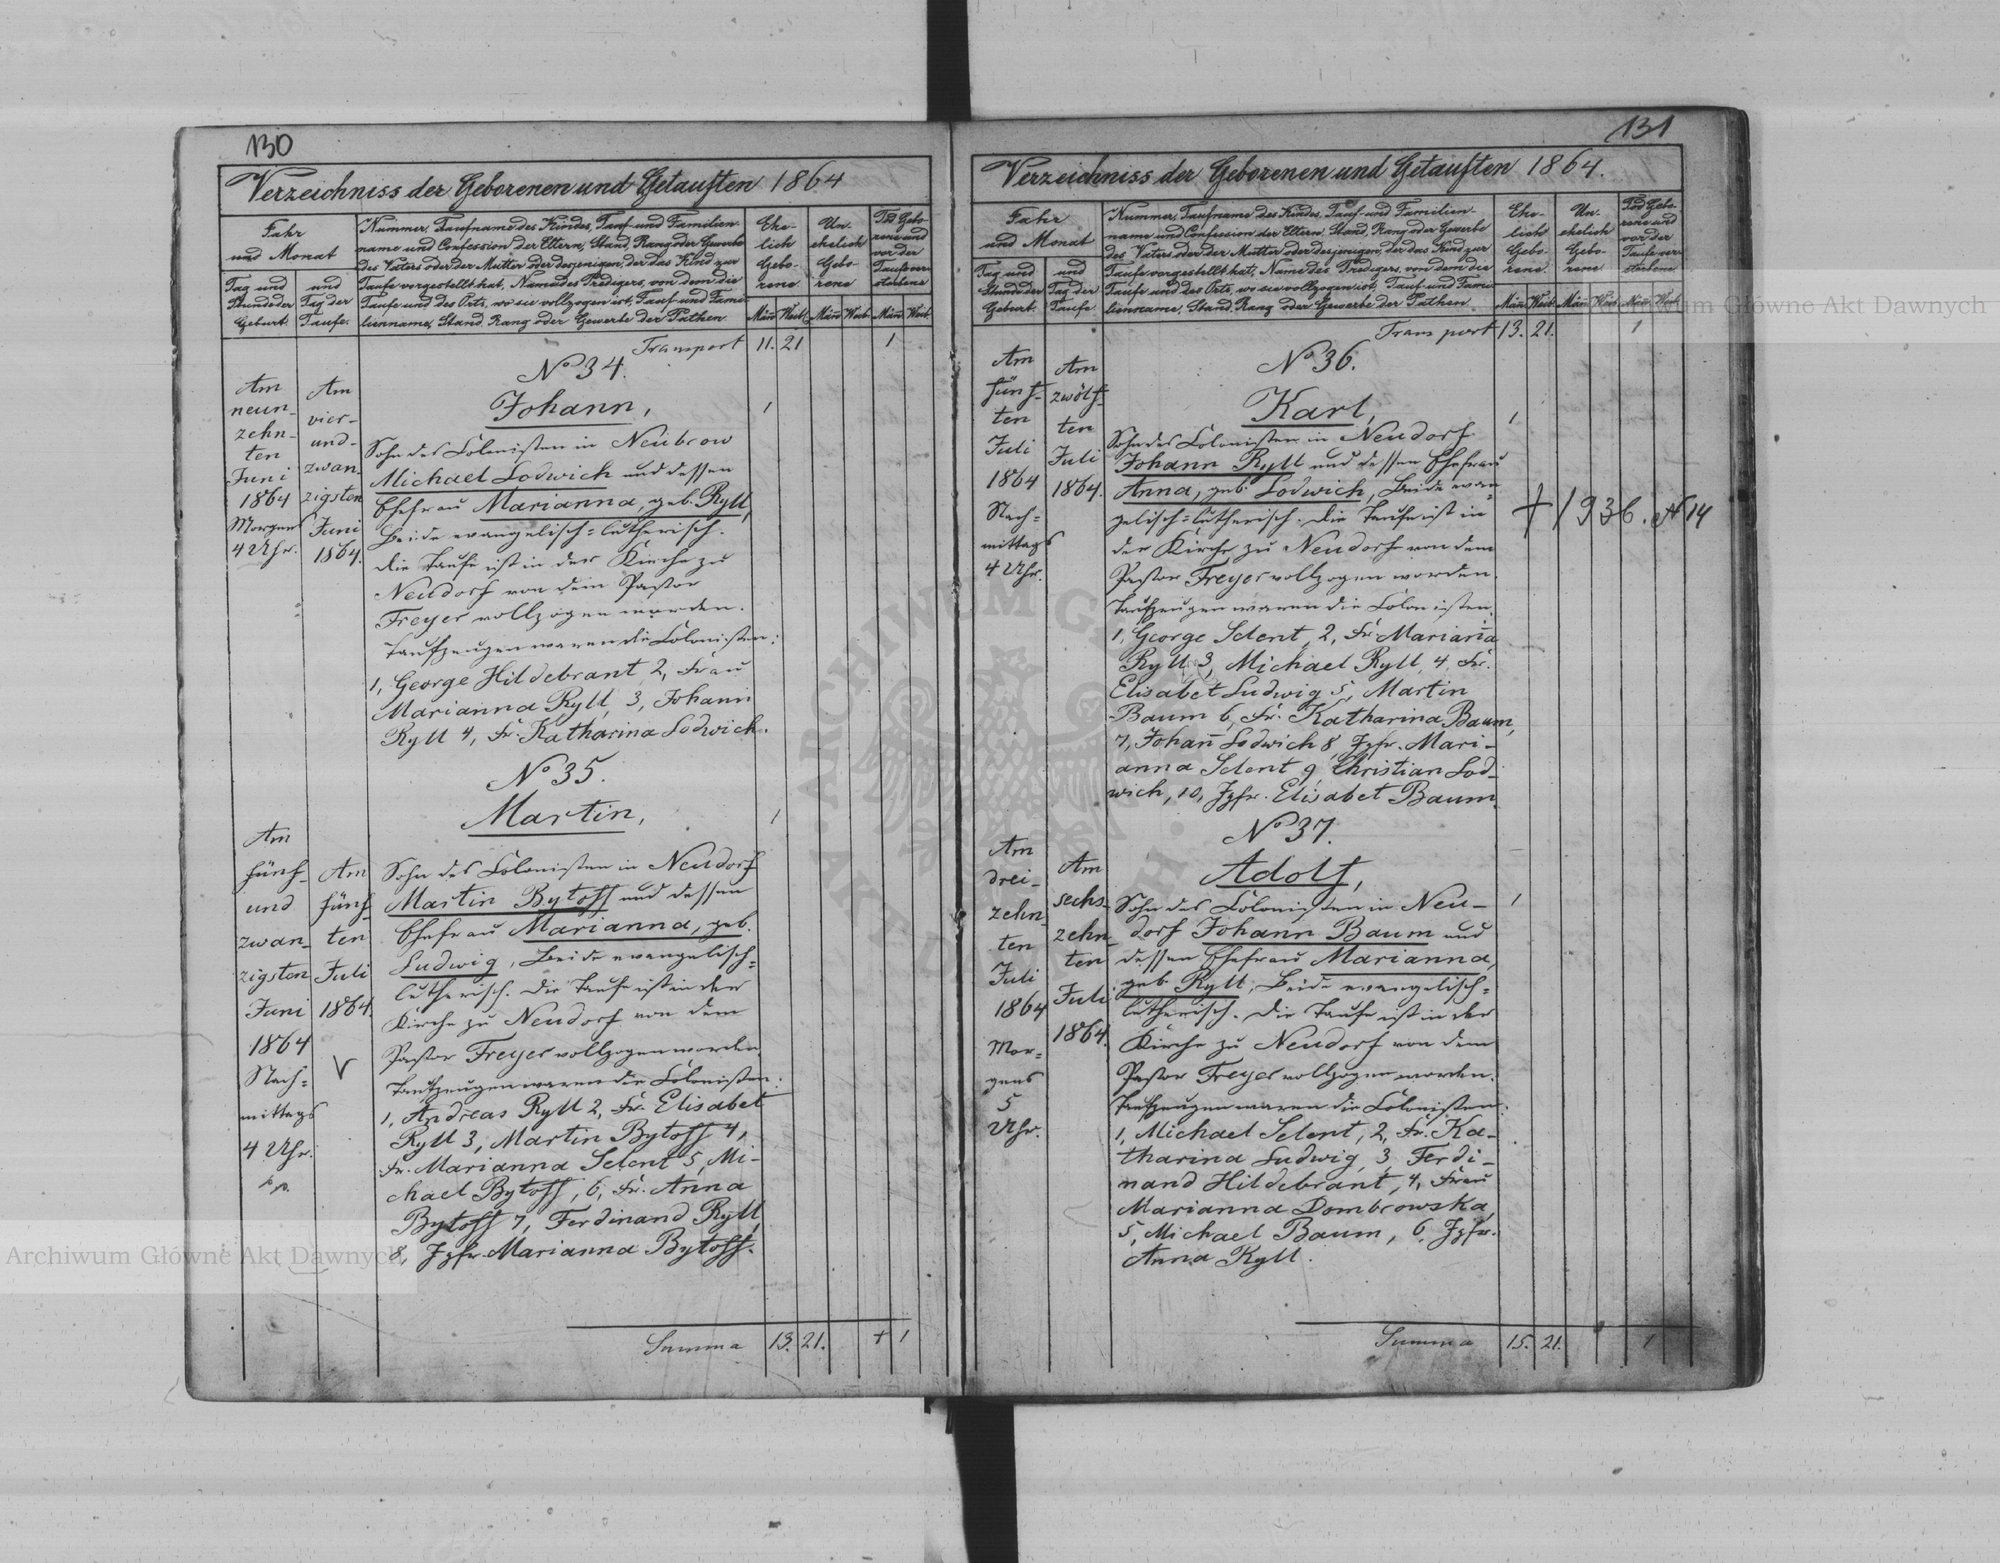 130
Verzeichniss der Geborenen und Getauften 1864
Jahr
und Monat
Tag und
Stunde der
Geburt.
und
Tag der
Taufe.
Nummer, Taufname des Kindes, Tauf- und Familien-
name und Confession der Eltern, Stand, Rang oder Gewerbe
des Vaters oder der Mutter oder desjenigen, der das Kind zur
Taufe vorgestellt hat, Name des Predigers, von dem die
Taufe und des Orts, wo sie vollzogen ist, Tauf- und Fami-
lienname, Stand, Rang oder Gewerbe der Pathen.
Ehe-
lich
Gebo-
rene
Un-
ehelich
Gebo-
rene
Tod Gebo-
rene und
vor der
Taufe ver-
storbene
Män̄ Weib. Män̄ Weib. Män̄ Weib.
Transport 11. 21 1
No 34.
Am
neun-
zehn-
ten
Juni
1864
Morgens
4 Uhr.
Am
vier-
und-
zwan-
zigsten
Juni
1864.
Johann, 1
Sohn des Colonisten in Neubrow
Michael Lodwich und dessen
Ehefrau Marianna, geb. Ryll,
Beide evangelisch=lutherisch.
Die Taufe ist in der Kirche zu
Neudorf von dem Pastor
Freyer vollzogen worden.
Taufzeugen waren die Colonisten:
1, George Hildebrant 2, Frau
Marianna Ryll, 3, Johann
Ryll 4, Fr. Katharina Lodwich.
No 35.
Am
fünf-
und
zwan-
zigsten
Juni
1864
Nach=
mittags
4 Uhr.
Am
fünf-
ten
Juli
1864.
V
Martin, 1
Sohn des Colonisten in Neudorf
Martin Bytoff und dessen
Ehefrau Marianna, geb.
Ludwig, Beide evangelisch=
lutherisch. Die Taufe ist in der
Kirche zu Neudorf von dem
Pastor Freyer vollzogen worden.
Taufzeugen waren die Colonisten:
1, Andreas Ryll 2, Fr. Elisabet
Ryll 3, Martin Bytoff 4,
Fr. Marianna Selent 5, Mi-
chael Bytoff, 6, Fr. Anna
Bytoff 7, Ferdinand Ryll
8, Jgfr. Marianna Bytoff.
Summa 13. 21. + 1
131
Verzeichniss der Geborenen und Getauften 1864.
Jahr
und Monat
Tag und
Stunde der
Geburt.
und
Tag der
Taufe
Nummer, Taufname des Kindes, Tauf- und Familien-
name und Confession der Eltern, Stand, Rang oder Gewerbe
des Vaters oder der Mutter oder desjenigen, der das Kind zur
Taufe vorgestellt hat, Name des Predigers, von dem die
Taufe und des Orts, wo sie vollzogen ist, Tauf- und Fami-
lienname, Stand, Rang oder Gewerbe der Pathen
Ehe-
lich
Gebo-
rene.
Un-
ehelich
Gebo-
rene.
Tod Gebo-
rene und
vor der
Taufe ver-
storbene.
Män̄ Weib. Män̄ Weib. Män̄ Weib.
Transport 13. 21. 1
No 36.
Am
fünf-
ten
Juli
1864
Nach=
mittags
4 Uhr.
Am
zwölf-
ten
Juli
1864.
Karl, 1
Sohn des Colonisten in Neudorf
Johann Ryll und dessen Ehefrau
Anna, geb. Lodwich, Beide evan=
gelisch=lutherisch. Die Taufe ist in
der Kirche zu Neudorf von dem
Pastor Freyer vollzogen worden.
Taufzeugen waren die Colonisten.
1, George Selent, 2, Fr. Marian̄a
Ryll 3, Michael Ryll, 4, Fr.
Elisabet Ludwig 5, Martin
Baum 6, Fr. Katharina Baum,
7, Johan̄ Lodwich 8, Jgfr. Mari-
anna Selent 9, Christian Lod-
wich, 10, Jgfr. Elisabet Baum
+ 1936. N 14
No 37.
Am
drei-
zehn-
ten
Juli
1864
Mor=
gens
5
Uhr.
Am
sechs-
zehn-
ten
Juli
1864.
Adolf, 1
Sohn des Colonisten in Neu-
dorf Johann Baum und
dessen Ehefrau Marianna,
geb. Ryll, Beide evangelisch=
lutherisch. Die Taufe ist in der
Kirche zu Neudorf von dem
Pastor Freyer vollzogen worden.
Taufzeugen waren die Colonisten:
1, Michael Selent, 2, Fr. Ka-
tharina Ludwig, 3, Ferdi-
nand Hildebrant, 4, Frau
Marianna Dombrowska,
5, Michael Baum, 6, Jgfr.
Anna Ryll.
Summa 15. 21. 1
Archiwum Główne Akt Dawnych
Archiwum Główne Akt Dawnych